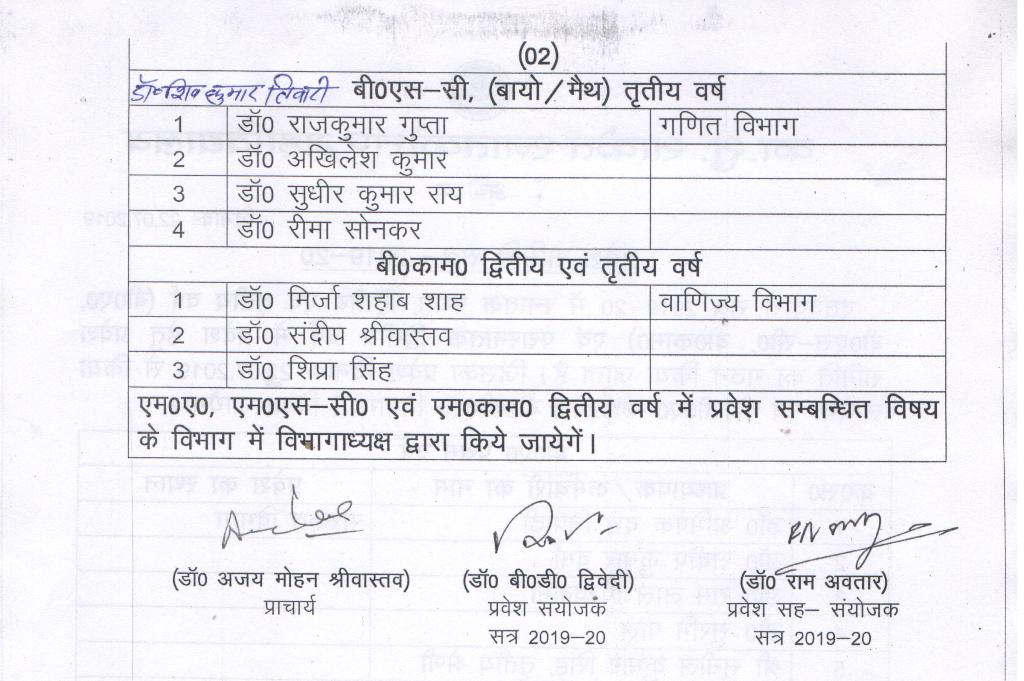 (02)
डॉ० शिव कुमार तिवारी बी0एस–सी, (बायो/मैथ) तृतीय वर्ष
1 डॉ0 राजकुमार गुप्ता गणित विभाग
2 डॉ0 अखिलेश कुमार
3 डॉ0 सुधीर कुमार राय
4 डॉ0 रीमा सोनकर
बी0काम0 द्वितीय एवं तृतीय वर्ष
1 डॉ0 मिर्जा शहाब शाह वाणिज्य विभाग
2 डॉ0 संदीप श्रीवास्तव
3 डॉ0 शिप्रा सिंह
एम0ए0, एम0एस–सी0 एवं एम0काम0 द्वितीय वर्ष में प्रवेश सम्बन्धित विषय
के विभाग में विभागाध्यक्ष द्वारा किये जायेगें।
(डॉ0 अजय मोहन श्रीवास्तव) (डॉ0 बी0डी0 द्विवेदी) (डॉ0 राम अवतार)
प्राचार्य प्रवेश संयोजक प्रवेश सह– संयोजक
सत्र 2019–20 सत्र 2019–20